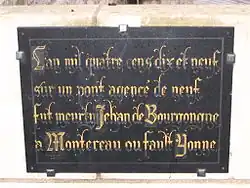 L'an mil quatre cens dix et neuf
sur un pont agencé de neuf
fut meurtry Jehan de Bourgongne
a Montereau ou fault Yonne